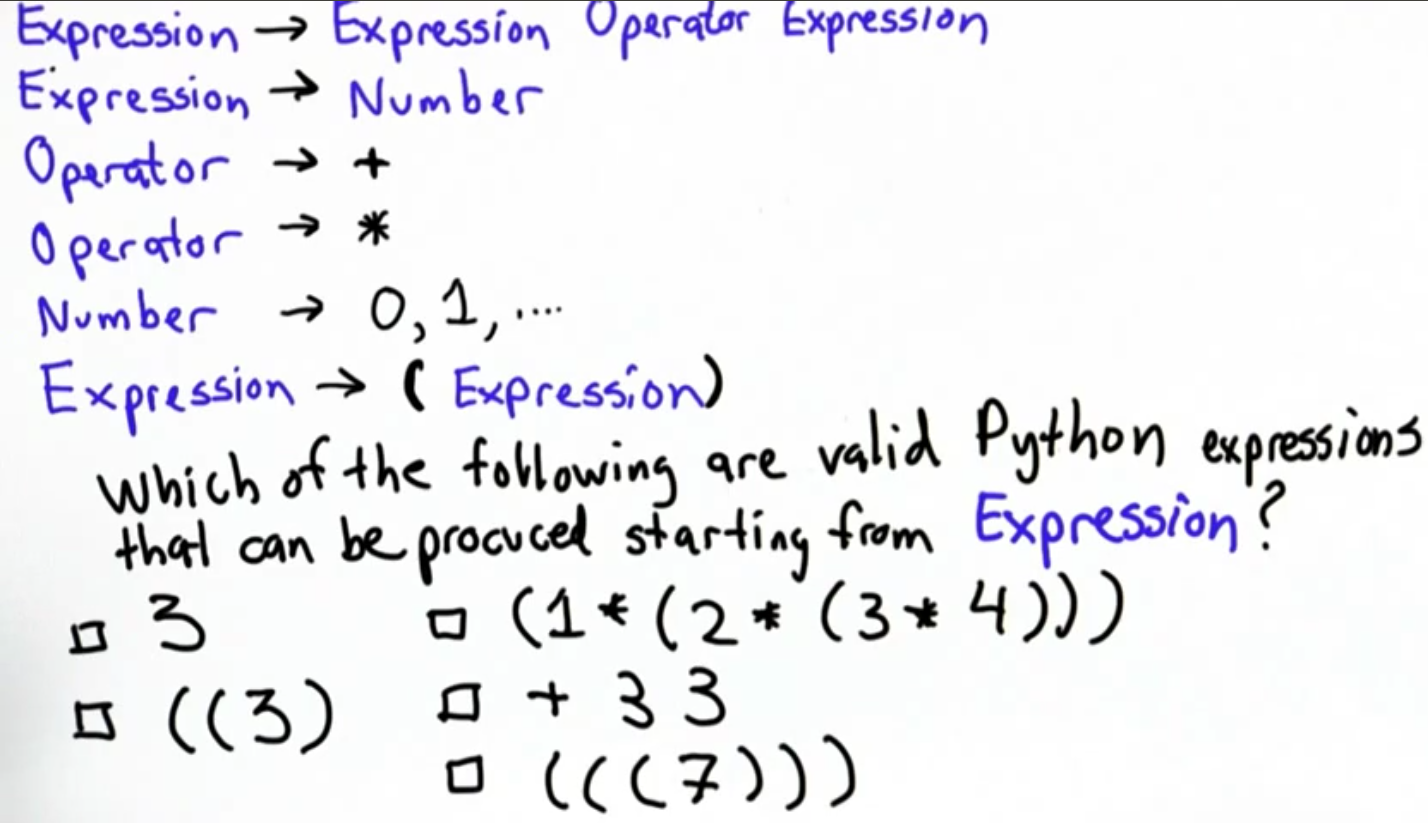 Expression → Expression Operator Expression
Expression → Number
Operator → +
Operator → *
Number → 0, 1, ....
Expression → ( Expression)
Which of the following are valid Python expressions
that can be procuced starting from Expression?
□ 3 □ (1 * (2 * (3 * 4)))
□ ((3) □ + 3 3
□ (((7)))